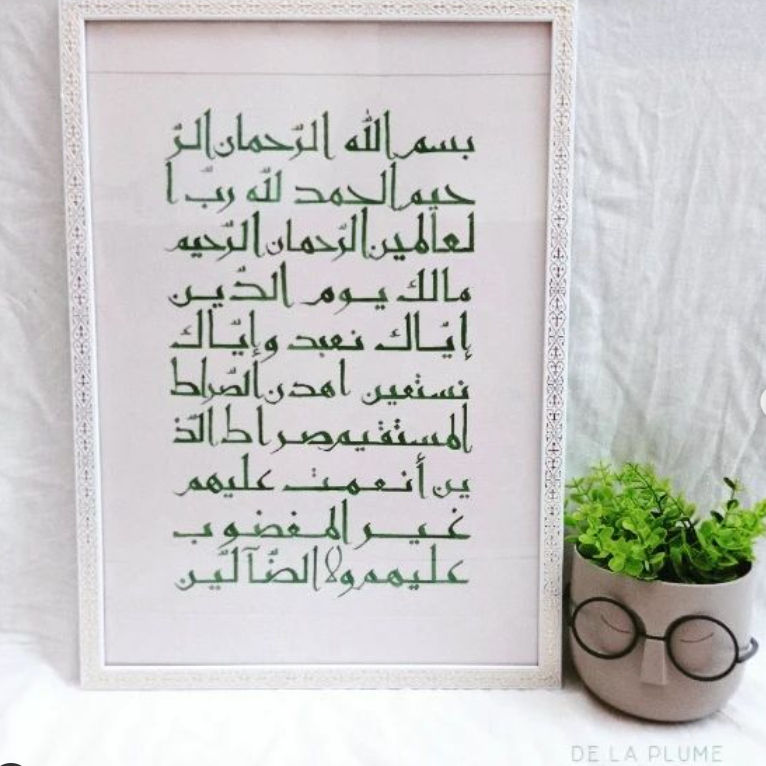 بسم الله الرّحمان الرّ
حيم الحمد للّه ربّ ا
لعالمين الرّحمان الرّحيم
مالك يوم الدّين
إيّاك نعبد وإيّاك
نستعين اهدن الصّراط
المستقيم صراط الّذ
ين أنعمت عليهم
غير المغضوب
عليهم ولا الضّآلّين
DE LA PLUME